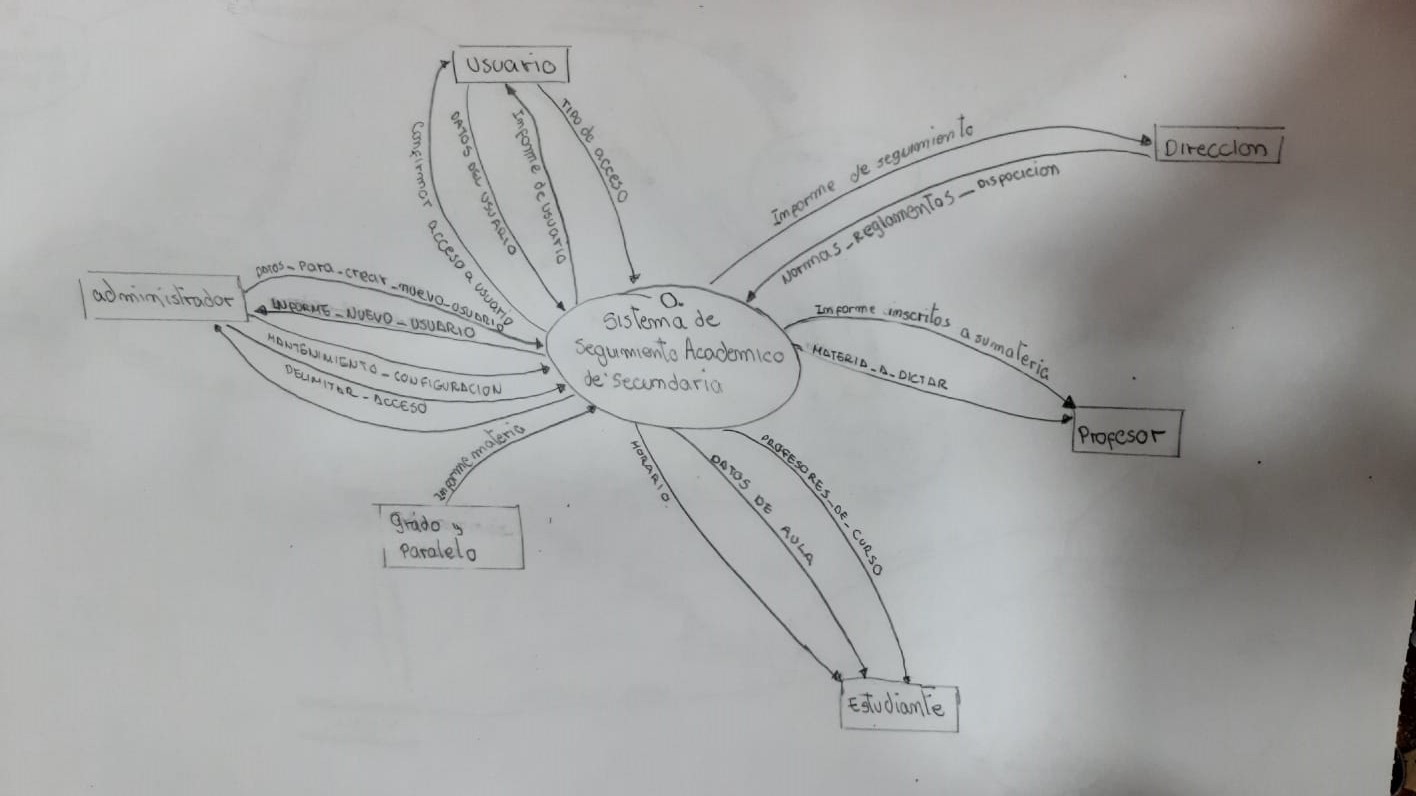 Usuario
Confirmar acceso a usuario
DATOS DEL USUARIO
Informe de usuario
TIPO de acceso
Informe de seguimiento
Direccion
Normas_Reglamentos_Disposicion
administrador
Datos_Para_crear_nuevo_usuario
INFORME_NUEVO_USUARIO
MANTENIMIENTO_CONFIGURACION
DELIMITAR_ACCESO
0.
Sistema de
Seguimiento Academico
de secundaria
Informe inscritos a sumateria
MATERIA_A_DICTAR
Profesor
Informe materia
Grado y
Paralelo
HORARIO
DATOS DE AULA
PROFESORES_DE_CURSO
Estudiante